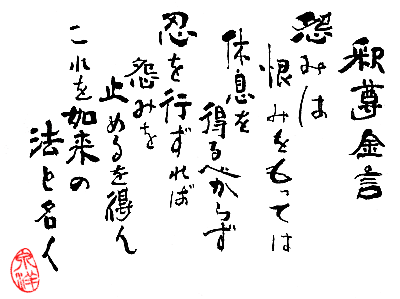 釈尊金言
怨みは
恨みをもっては
休息を
得るべからず
忍を行ずれば
怨みを
止めるを得ん
これを如来の
法と名く